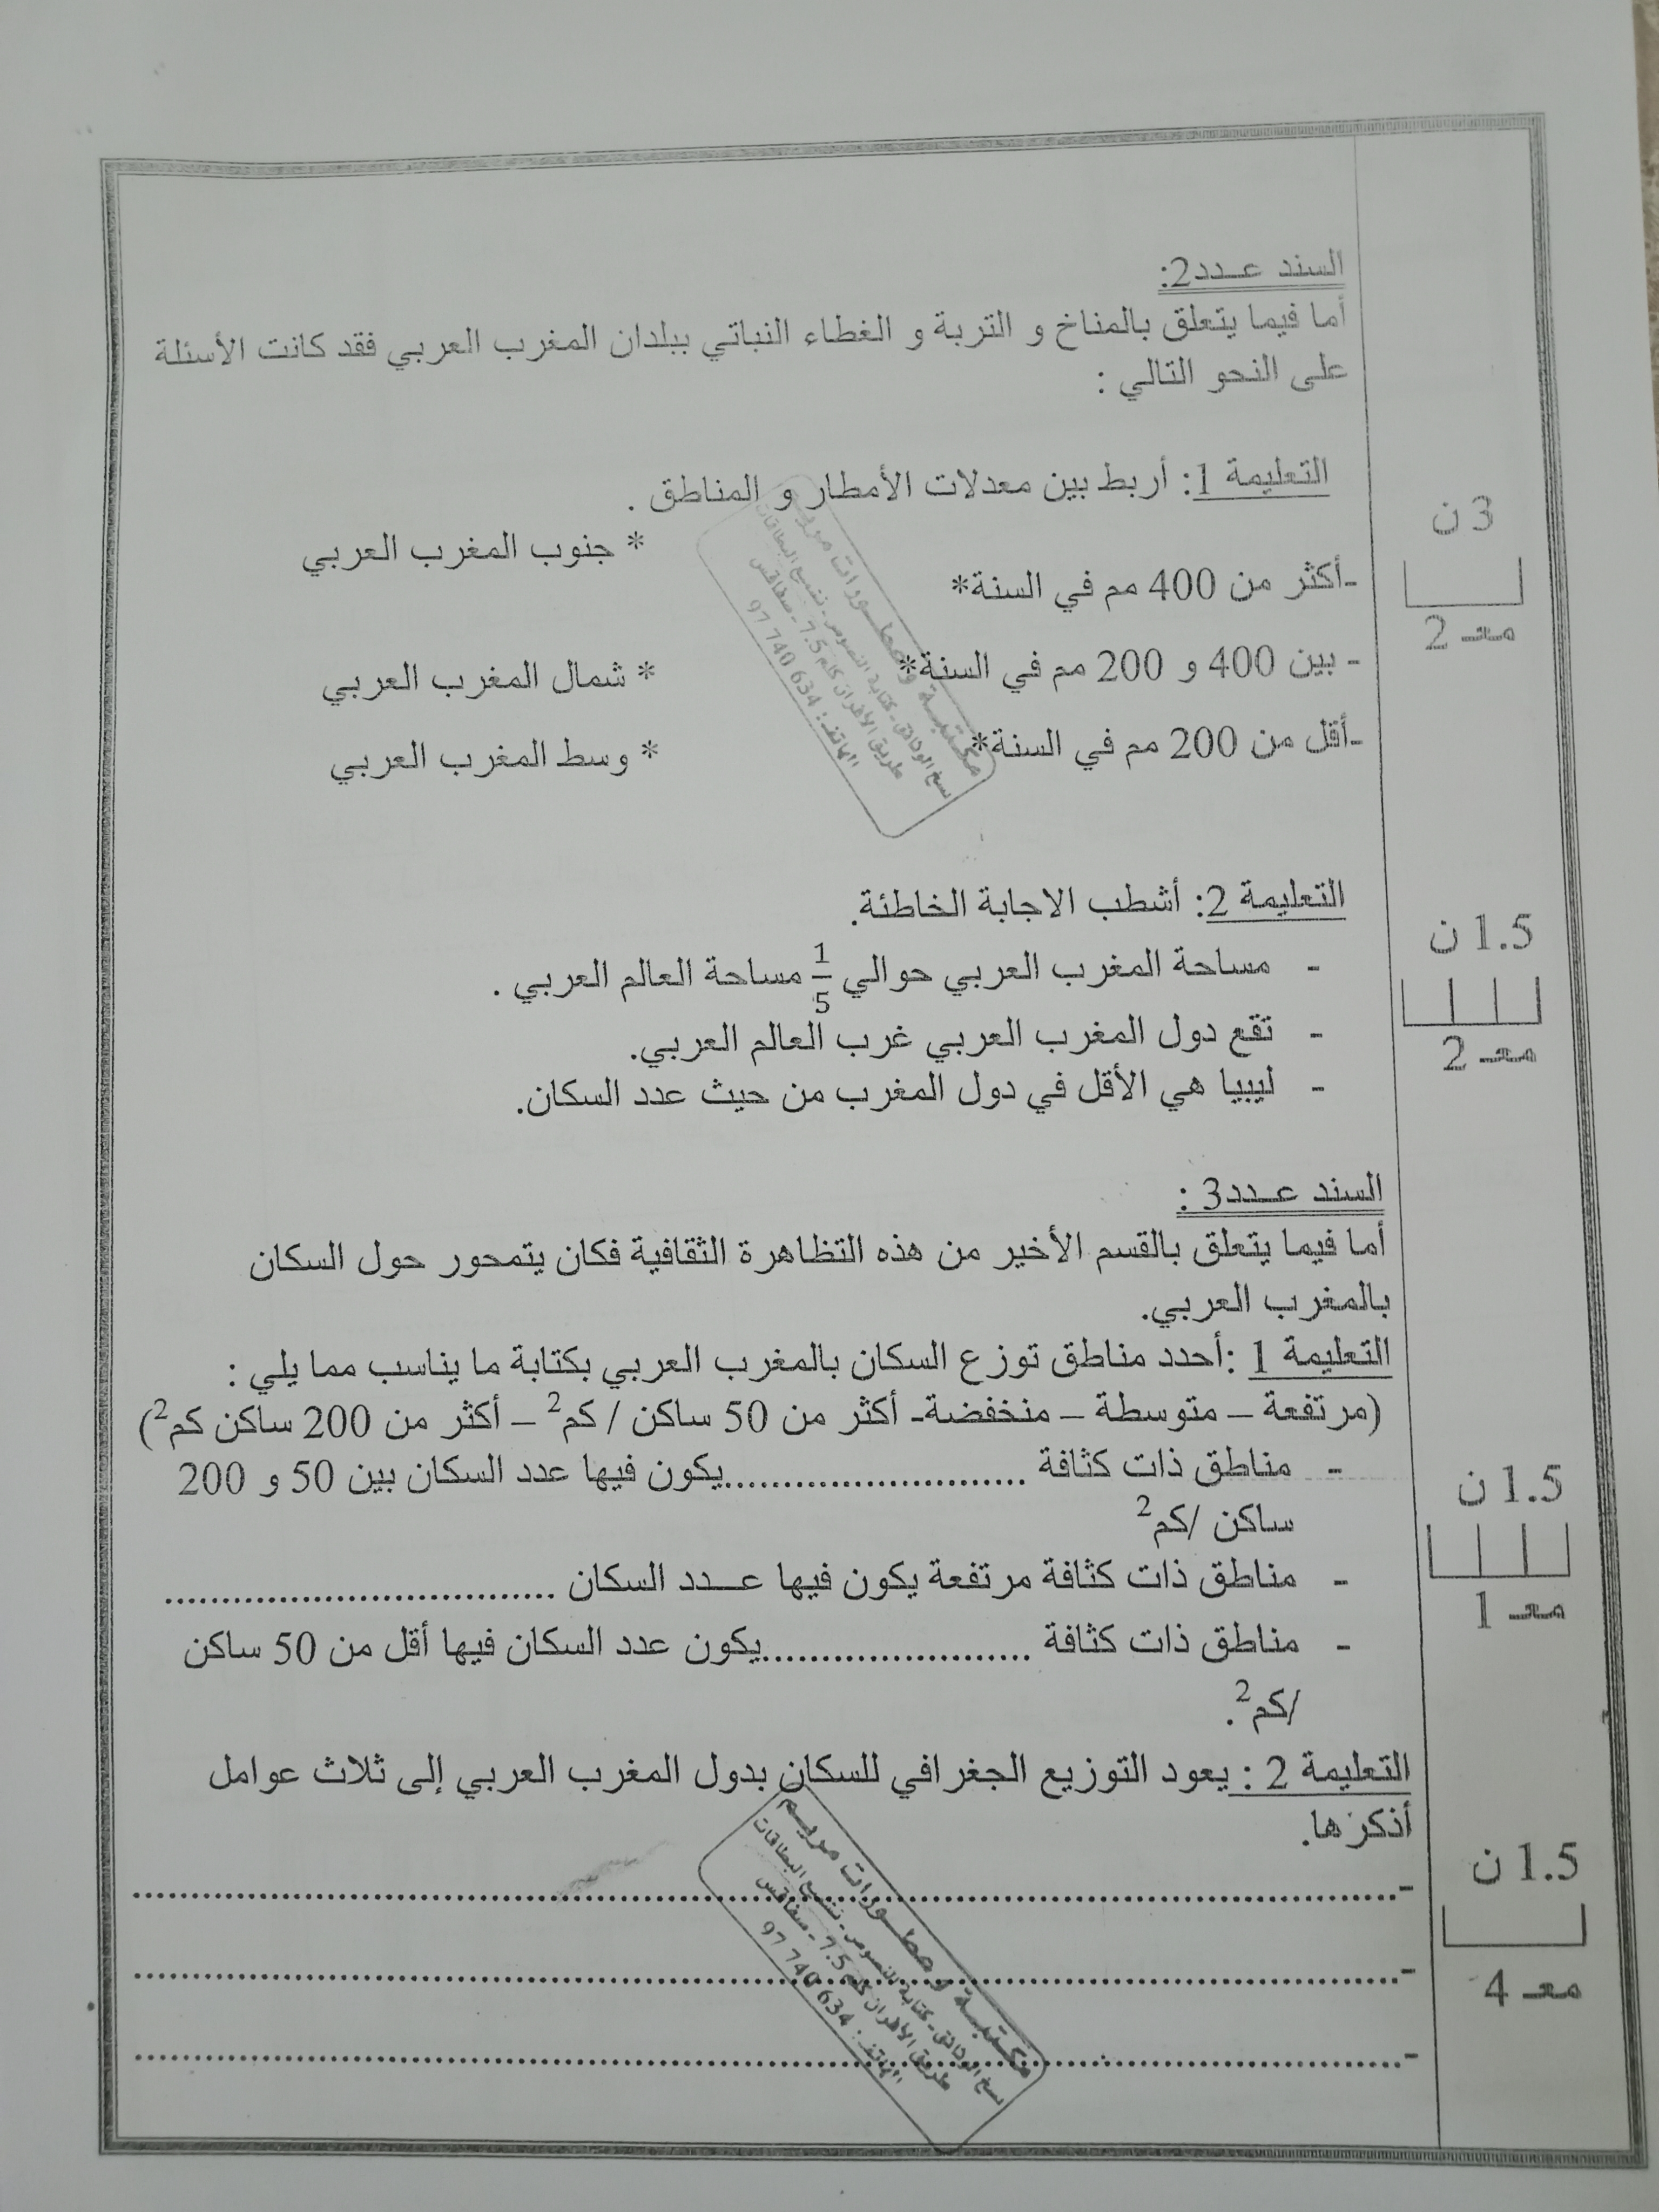 السند عـدد2:
أما فيما يتعلق بالمناخ و التربة و الغطاء النباتي ببلدان المغرب العربي فقد كانت الأسئلة
على النحو التالي :
التعليمة 1: أربط بين معدلات الأمطار و المناطق .
3 ن
معـ 2
* جنوب المغرب العربي
-أكثر من 400 مم في السنة*
* شمال المغرب العربي
- بين 400 و 200 مم في السنة*
* وسط المغرب العربي
-أقل من 200 مم في السنة*
مكتبة ومطـورات مريـم
نسخ الوثائق - كتابة النصوص - تشبيع البطاقات
طريق الأفران كلم 7.5 - صفاقس
الهاتف : 634 740 97
التعليمة 2: أشطب الاجابة الخاطئة.
1.5 ن
معـ 2
- مساحة المغرب العربي حوالي 1/5 مساحة العالم العربي .
- تقع دول المغرب العربي غرب العالم العربي.
- ليبيا هي الأقل في دول المغرب من حيث عدد السكان.
السند عـدد3 :
أما فيما يتعلق بالقسم الأخير من هذه التظاهرة الثقافية فكان يتمحور حول السكان
بالمغرب العربي.
التعليمة 1 :أحدد مناطق توزع السكان بالمغرب العربي بكتابة ما يناسب مما يلي :
(مرتفعة – متوسطة – منخفضة- أكثر من 50 ساكن / كم² – أكثر من 200 ساكن كم²)
1.5 ن
معـ 1
- مناطق ذات كثافة ..........................يكون فيها عدد السكان بين 50 و 200
ساكن /كم²
- مناطق ذات كثافة مرتفعة يكون فيها عـدد السكان .................................
- مناطق ذات كثافة .......................يكون عدد السكان فيها أقل من 50 ساكن
/كم².
التعليمة 2 : يعود التوزيع الجغرافي للسكان بدول المغرب العربي إلى ثلاث عوامل
أذكرها.
1.5 ن
معـ 4
-..........................................................................................
-..........................................................................................
-..........................................................................................
مكتبة ومطـورات مريـم
نسخ الوثائق - كتابة النصوص - تشبيع البطاقات
طريق الأفران كلم 7.5 - صفاقس
الهاتف : 634 740 97